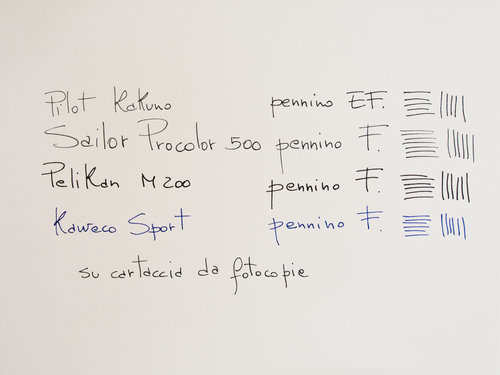 Pilot Kakuno pennino EF.
Sailor Procolor 500 pennino F.
Pelikan M200 pennino F.
Kaweco Sport pennino F.
su cartaccia da fotocopie